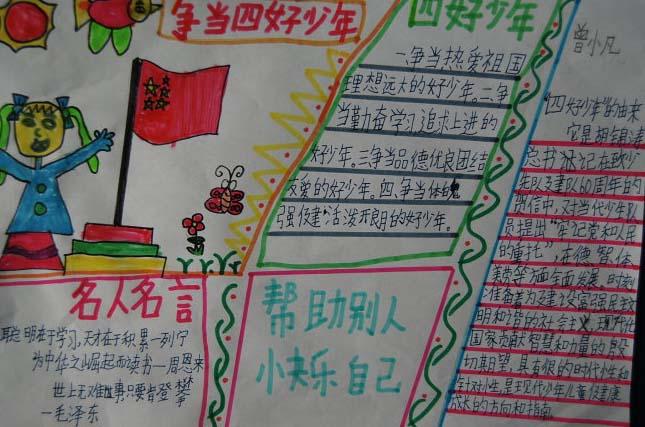 争当四好少年
四好少年
一争当热爱祖国
理想远大的好少年。二、争
当勤奋学习追求上进的
好少年。三争当品德优良团结
友爱的好少年。四、争当体魄
强健、活泼开朗的好少年。
曾小凡
"四好少年"的由来
它是胡锦涛
总书记在致少
先队建队60周年的
贺信中,对当代少年队
员提出"牢记党和人民
的重托",在德智体
美劳等方面全面发展,时刻
准备着为建设富强民主
明和谐的社会主义现代化
国家贡献智慧和力量的殷
切期望,具有很的时代性和
针对性,是现代少年儿童健康
成长的方向和指南。
名人名言
聪明在于学习,天才在于积累一列宁
为中华之崛起而读书一周恩来
世上无难事只要肯登攀
一毛泽东
帮助别人
小夫乐自己